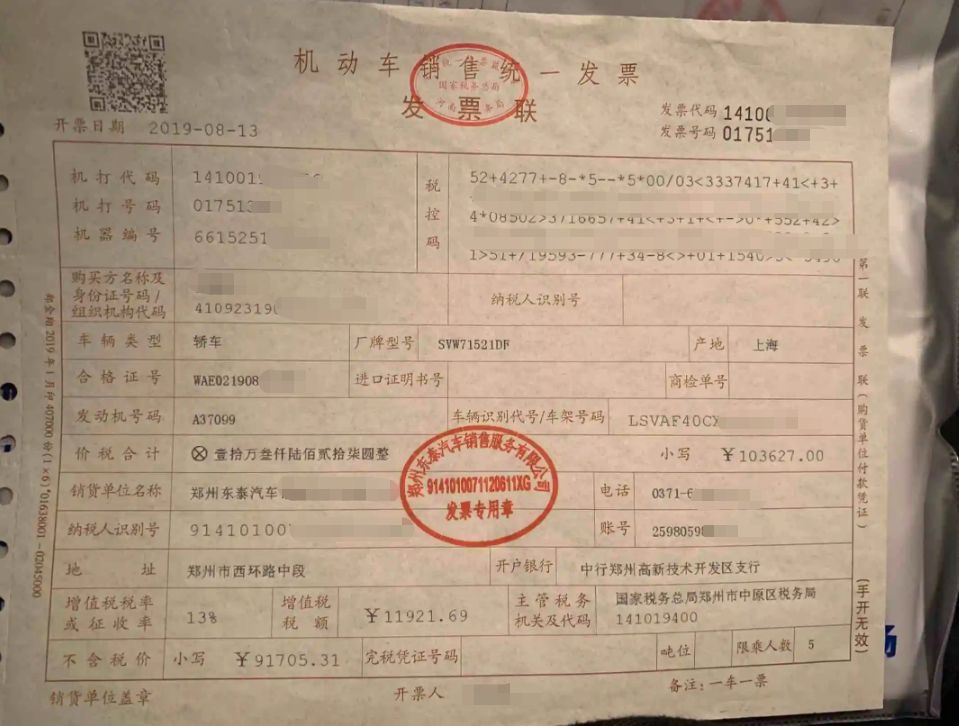 机动车销售统一发票
发票联
国家税务总局
开票日期 2019-08-13
发票代码 14100
发票号码 01751
机打代码 141001
机打号码 01751
机器编号 6615251
税控码
52+4277+-8-*5--*5*00/03<3337417+41<+3+
4*08502>3716657+41<+3+1+<+->0*+552+42>
1>51+/19593-777+34-8<>+01+1540>5<-5490
购买方名称及身份证号码/组织机构代码 41092319
纳税人识别号
车辆类型 轿车 厂牌型号 SVW71521DF 产地 上海
合格证号 WAE021908 进口证明书号 商检单号
发动机号码 A37099 车辆识别代号/车架号码 LSVAF40C
价税合计 ⊗壹拾万叁仟陆佰贰拾柒圆整 小写 ￥103627.00
销货单位名称 郑州东泰汽车 电话 0371-6
纳税人识别号 91410100 账号 2598059
地址 郑州市西环路中段 开户银行 中行郑州高新技术开发区支行
增值税税率或征收率 13% 增值税税额 ￥11921.69 主管税务机关及代码 国家税务总局郑州市中原区税务局 141019400
不含税价 小写 ￥91705.31 完税凭证号码 吨位 限乘人数 5
销货单位盖章 开票人 备注：一车一票
郑州东泰汽车销售服务有限公司
9141010071120611XG
发票专用章
第一联 发票联（购货单位付款凭证）
（手开无效）
2019年1月印407000份(1×6)*01638001-02045000